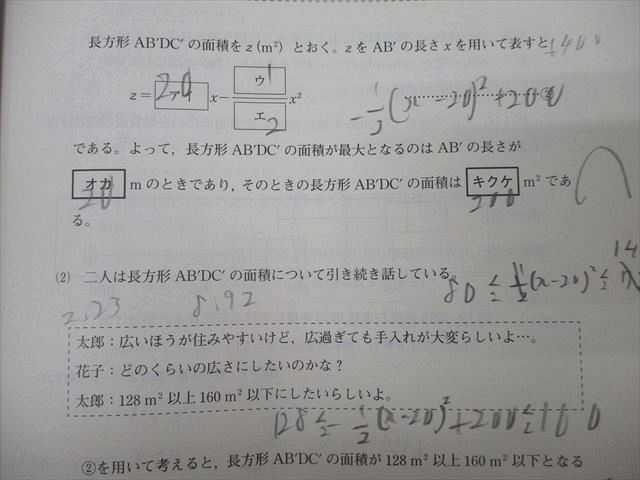 長方形 AB′DC′ の面積を z (m²) とおく。z を AB′ の長さ x を用いて表すと
1400
z = アイ x − ウ/エ x² ………………②
20 1 2
−1/2(x−20)²+200
である。よって，長方形 AB′DC′ の面積が最大となるのは AB′ の長さが
オカ m のときであり，そのときの長方形 AB′DC′ の面積は キクケ m² であ
20 200
る。
(2) 二人は長方形 AB′DC′ の面積について引き続き話している。
14
80 ≤ 1/2(x−20)² ≤
2,23 8,92
太郎：広いほうが住みやすいけど，広過ぎても手入れが大変らしいよ…。
花子：どのくらいの広さにしたいのかな？
太郎：128 m² 以上 160 m² 以下にしたいらしいよ。
128 ≤ −1/2(x−20)²+200 ≤ 160
②を用いて考えると，長方形 AB′DC′ の面積が 128 m² 以上 160 m² 以下となる